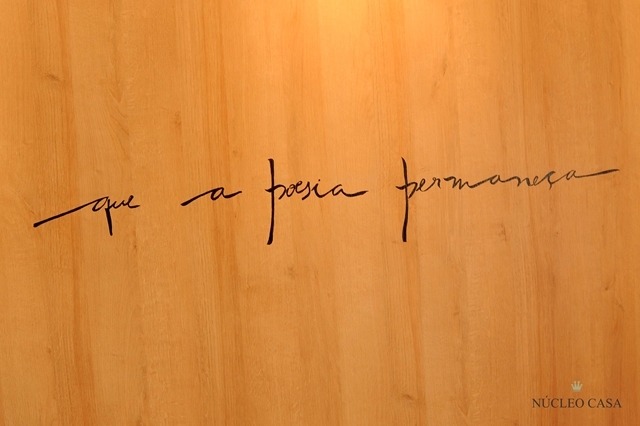 que a poesia permaneça
NÚCLEO CASA